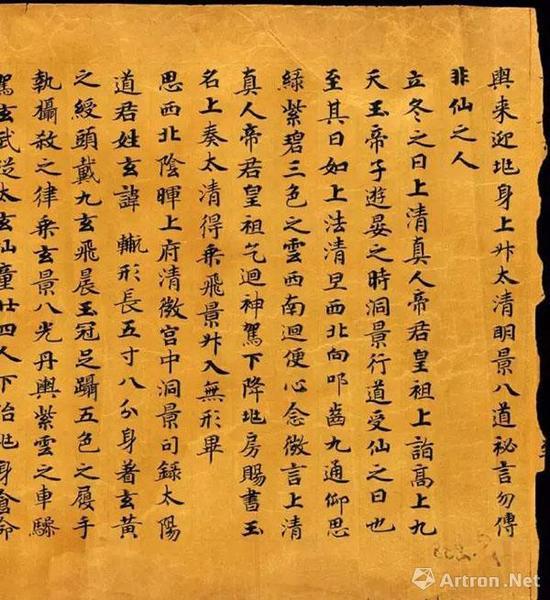 輿来迎兆身上升太清明景八道祕言勿傳
非仙之人
立冬之日上清真人帝君皇祖上詣高上九
天玉帝子遊晏之時洞景行道受仙之日也
至其日如上法清旦西北向叩齒九通仰思
緑紫碧三色之雲西南迴便心念微言上清
真人帝君皇祖乞迴神駕下降兆房賜書玉
名上奏太清得乗飛景升入無形畢
思西北陰暉上府清微宮中洞景司録太陽
道君姓玄諱 形長五寸八分身著玄黃
之綬頭戴九玄飛晨玉冠足躡五色之履手
執攝殺之律乗玄景八光丹輿紫雲之車驂
駕玄武從太玄仙童廿四人下治兆身命
Artron.Net